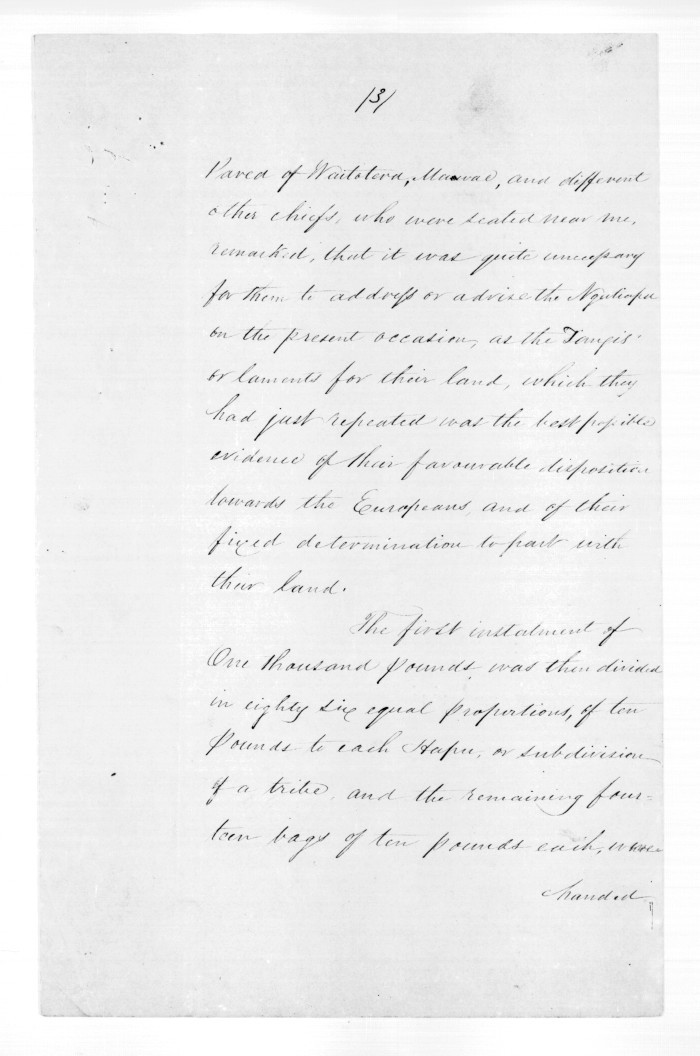 /3/
Pared of Waitotera, Mawae, and different
other chiefs, who were seated near me,
remarked, that it was quite unnecessary
for them to address or advise the Ngatiapa
on the present occasion, as the Tangis
or laments for their land, which they
had just repeated was the best possible
evidence of their favourable disposition
towards the Europeans, and of their
fixed determination to part with
their land.
The first instalment of
One thousand pounds, was then divided
in eighty six equal proportions, of ten
Pounds to each Hapu, or subdivision
of a tribe, and the remaining four=
teen bags of ten pounds each, were
handed